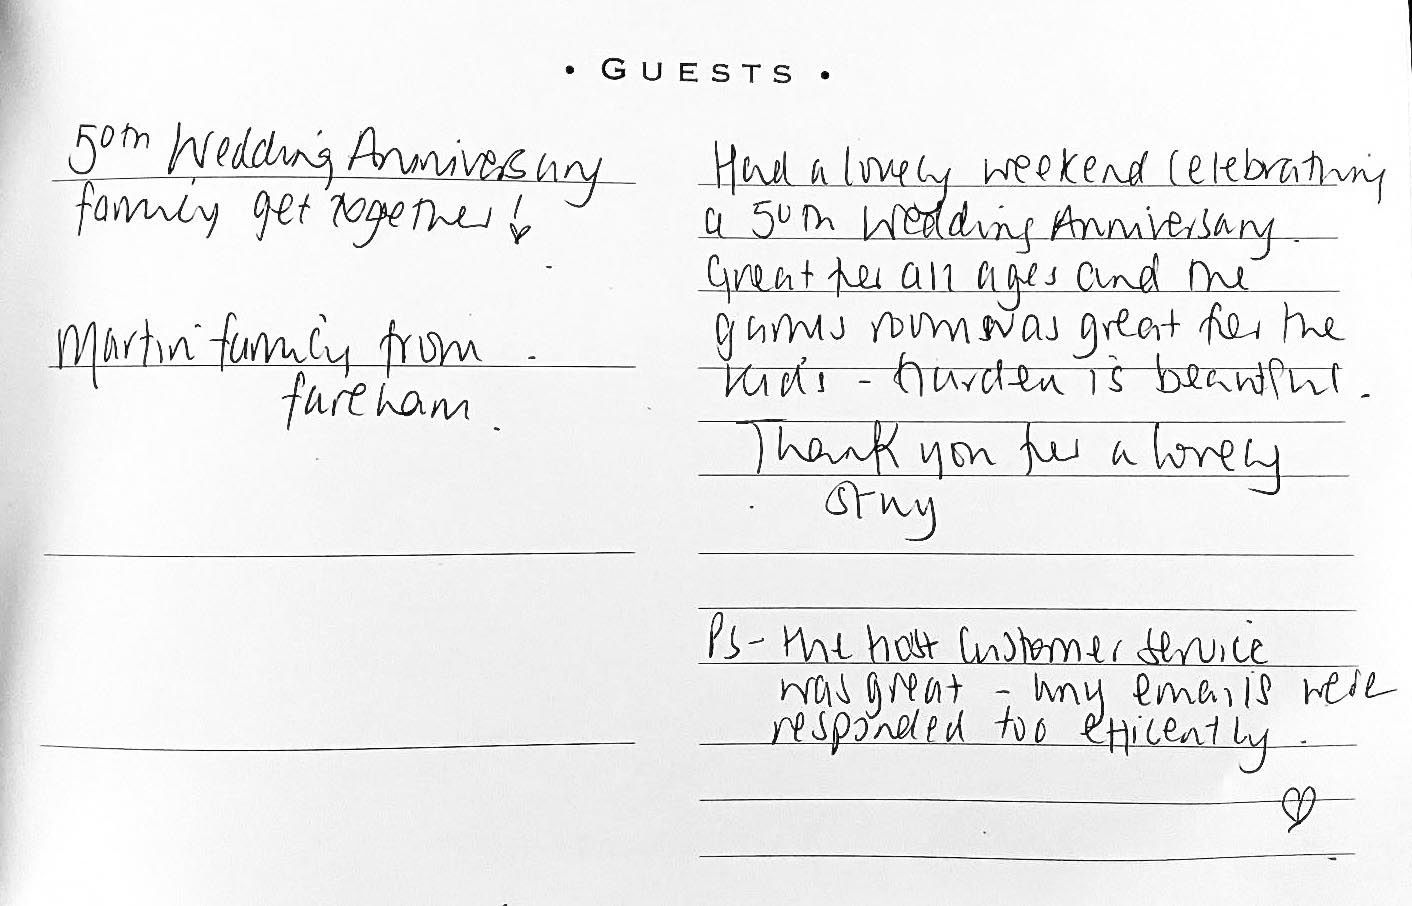 • GUESTS •
50th Wedding Anniversary
family get together!
Martin family from
fareham.
Had a lovely weekend celebrating
a 50th Wedding Anniversary.
Great for all ages and the
games room was great for the
kids - Garden is beautiful.
Thank you for a lovely
stay
PS - the host customer service
was great - any emails were
responded too efficently.